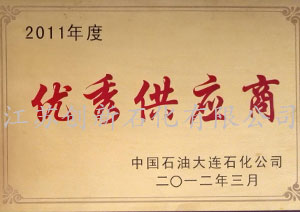 2011年度
优秀供应商
江苏创新石化有限公司
中国石油大连石化公司
二〇一二年三月